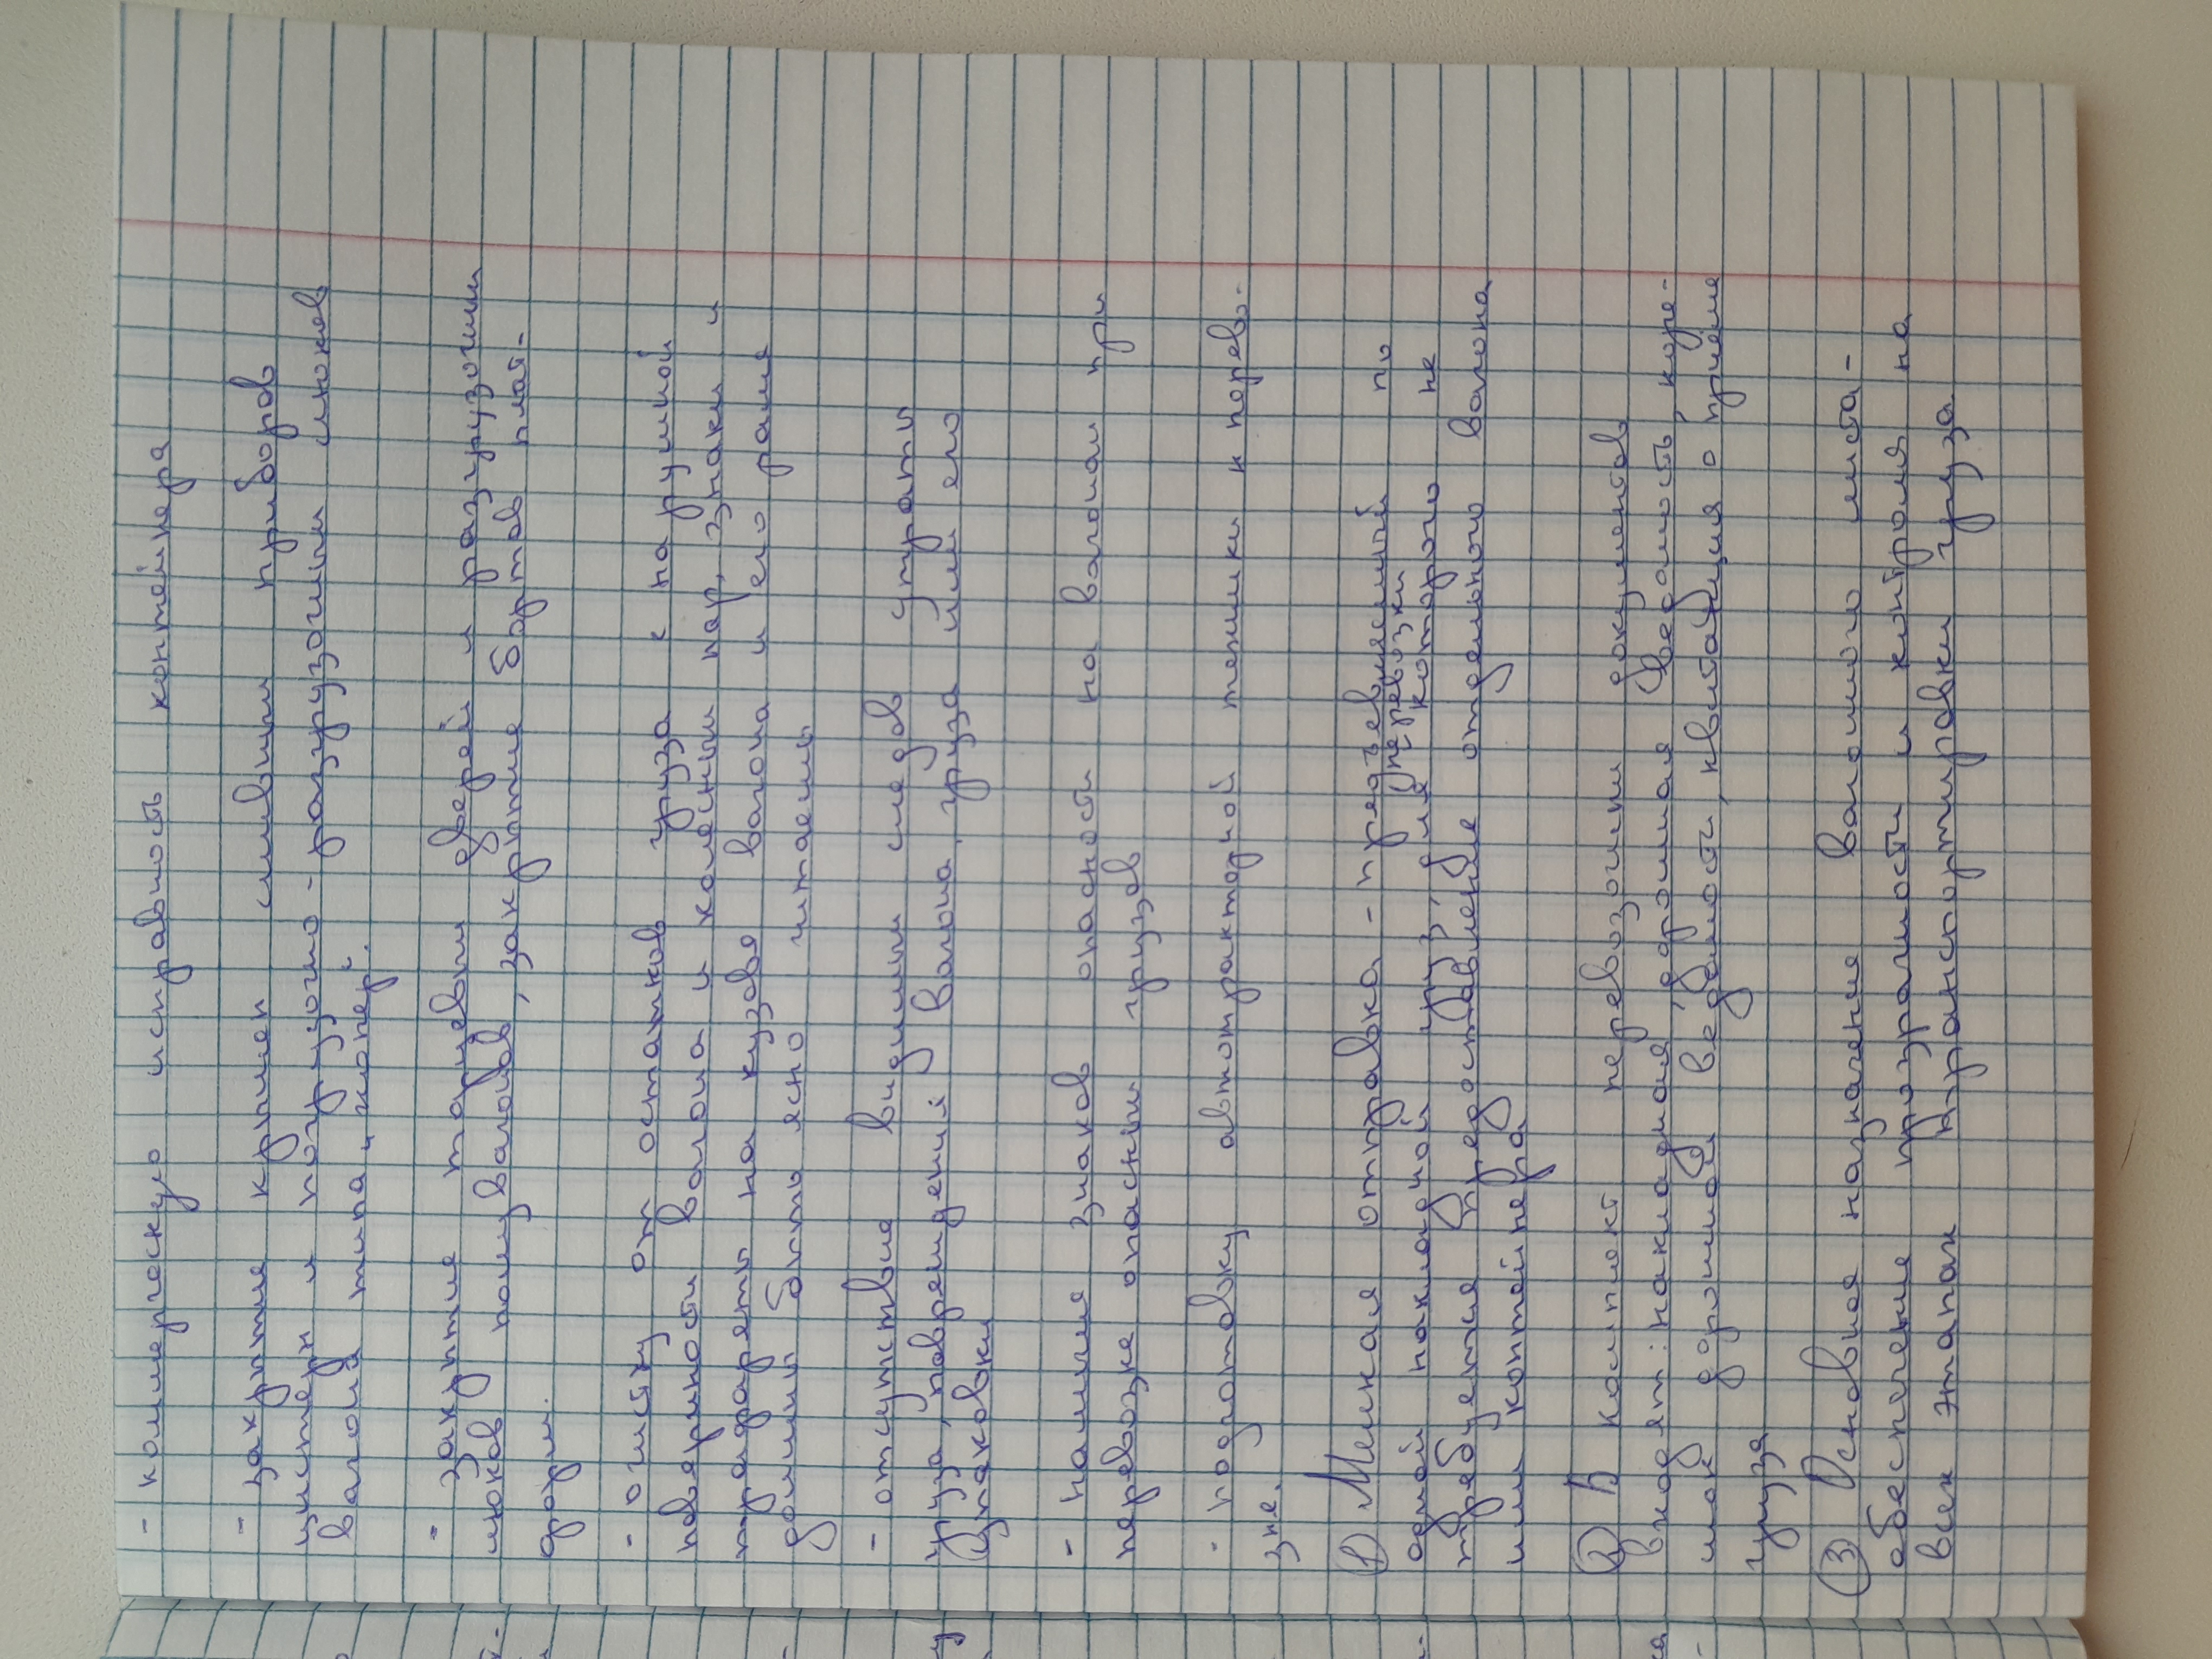 - коммерческую исправность контейнера
- закрытие крышек сливных приборов
цистерн и погрузочно-разгрузочных люков
вагонов типа "хопер".
- закрытие торцевых дверей и разгрузочных
люков полувагонов, закрытие бортов плат-
форм.
- очистку от остатков груза с наружной
поверхности вагона и колесных пар, знаки и
трафареты на кузове вагона и его раме
должны быть ясно читаемы
- отсутствие видимых следов утраты
груза, повреждений вагона, груза или его
упаковки
- наличие знаков опасности на вагонах при
перевозке опасных грузов
- подготовку автотракторной техники к перево-
зке.
① Мелкая отправка - предъявляемый по
перевозки
одной накладной груз, для которого не
требуется предоставление отдельного вагона
или контейнера
② В комплект перевозочных документов
входят: накладная, дорожная ведомость, коре-
шок дорожной ведомости, квитанция о приёме
груза
③ Основное назначение вагонного листа -
обеспечение прозрачности и контроля на
всех этапах транспортировки груза